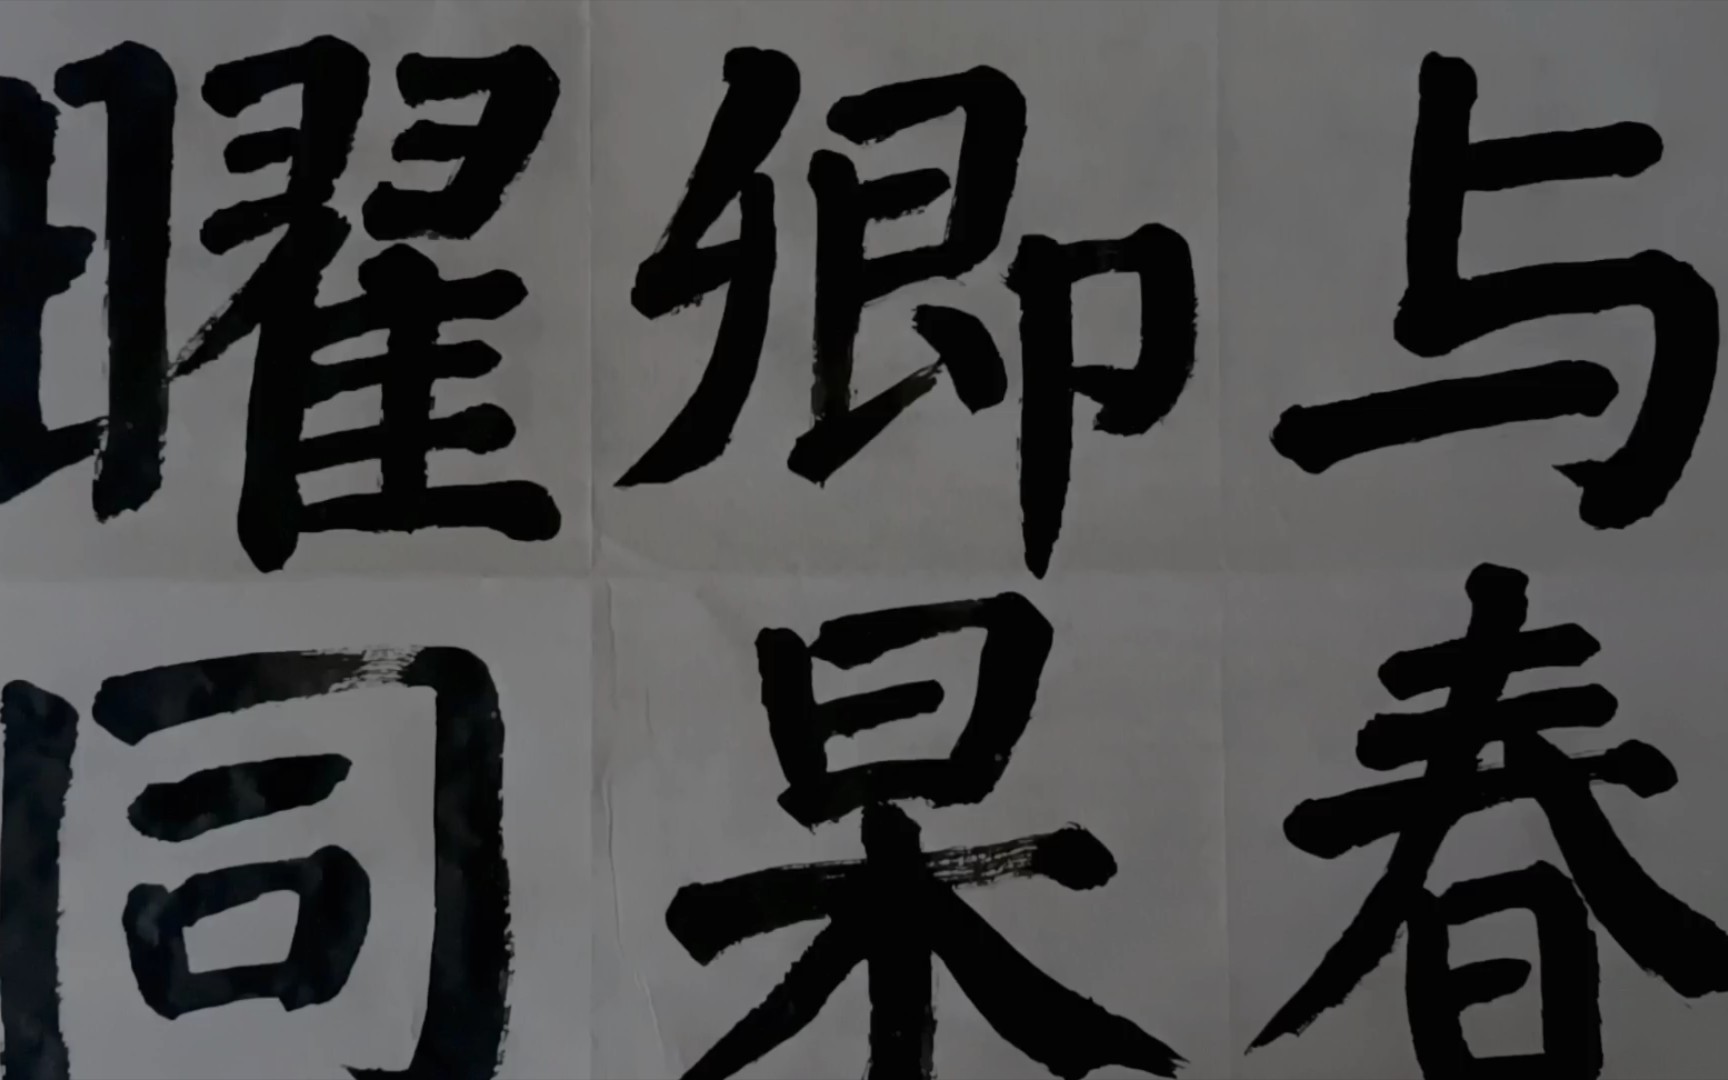 与春
卿杲
曜同